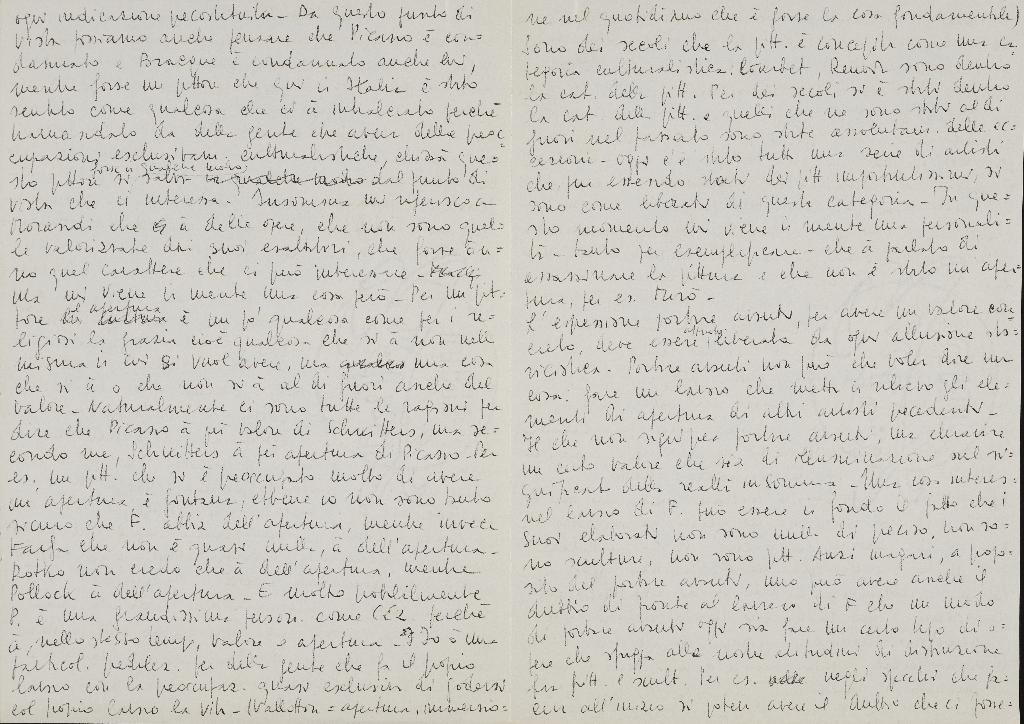 ogni indicazione precostituita – Da questo punto di
vista possiamo anche pensare che Picasso è con=
dannato e Bracque è condannato anche lui,
mentre forse un pittore che qui in Italia è stato
sentito come qualcosa che ci à intralciato perchè
tramandato da della gente che aveva delle preoc
cupazioni esclusivam. culturalistiche, chissà que=
sto pittore forse in qualche modo si salvi dal punto di
vista che ci interessa. Insomma mi riferisco a
Morandi che à delle opere, che non sono quel=
le valorizzate dai suoi esaltatori, che forse àn=
no quel carattere che ci può interessare –
ma mi viene in mente una cosa però – Per un pit=
tore l'apertura è un po' qualcosa come per i re=
ligiosi la grazia cioè qualcosa che si à non nella
misura in cui si vuol avere, ma una cosa
che si à o che non si à al di fuori anche del
valore – Naturalmente ci sono tutte le ragioni per
dire che Picasso à più valore di Schwitters, ma se=
condo me, Schwitters à più apertura di Picasso – Per
es. un pitt. che si è preoccupato molto di avere
un apertura è Fontana, ebbene io non sono tanto
sicuro che F. abbia dell'apertura, mentre invece
Farfa che non è quasi nulla, à dell'apertura –
Rotko non credo che à dell'apertura, mentre
Pollock à dell'apertura – E molto probabilmente
P. è una grandissima person. come perchè
à, nello stesso tempo, valore e apertura – Io ò una
particol. predilez. per della gente che fa il proprio
lavoro con la preoccupaz. quasi esclusiva di godersi
col proprio lavoro la vita – (Wallotton = apertura, immersio=
ne nel quotidiano che è forse la cosa fondamentale)
Sono dei secoli che la pitt. è concepita come una ca
tegoria culturalistica: Courbet, Renoir sono dentro
la cat. della pitt. Per dei secoli si è stati dentro
la cat. della pitt. e quelli che ne sono stati al di
fuori nel passato sono state assolutam. delle ec=
cezioni – oggi c'è stata tutta una serie di artisti
che pur essendo stati dei pitt importantissimi, si
sono come liberati di questa categoria – In que=
sto momento mi viene in mente una personali=
tà – tanto per esemplificare – che à parlato di
assassinare la pittura e che non è stato un aper=
tura, per es. Mirò –
L'espressione portare avanti, per avere un valore con
creto, deve essere liberata da ogni allusione sto=
ricistica. Portare avanti non può che voler dire una
cosa: fare un lavoro che metta in rilievo gli ele=
menti di apertura di altri artisti precedenti –
Il che non significa portare avanti, ma chiarire
un certo valore che sia di sul si=
gnificato della realtà insomma – Una cosa interes=
nel lavoro di F. può essere in fondo il fatto che i
suoi elaborati non sono nulla di preciso, non so=
no sculture, non sono pitt. Anzi magari, a propo=
sito del portare avanti, uno può avere anche il
dubbio di fronte al lavoro di F che un modo
di portare avanti oggi sia fare un certo tipo di o=
pere che sfugga alle nostre abitudini di distinzione
fra pitt. e scult. Per es. negli specchi che fa=
cevi all'inizio si poteva avere il dubbio che ci fosse=